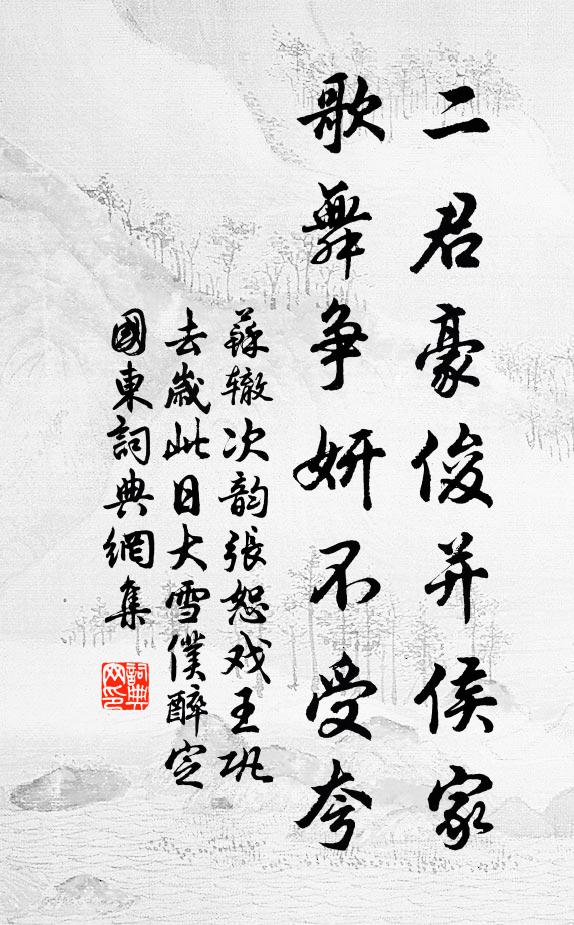 二君豪俊并侯家
歌舞争妍不受夸
蘇辙次韵張恕戏王巩
去歲此日大雪僕醉定
國東詞典網集
詞典网印